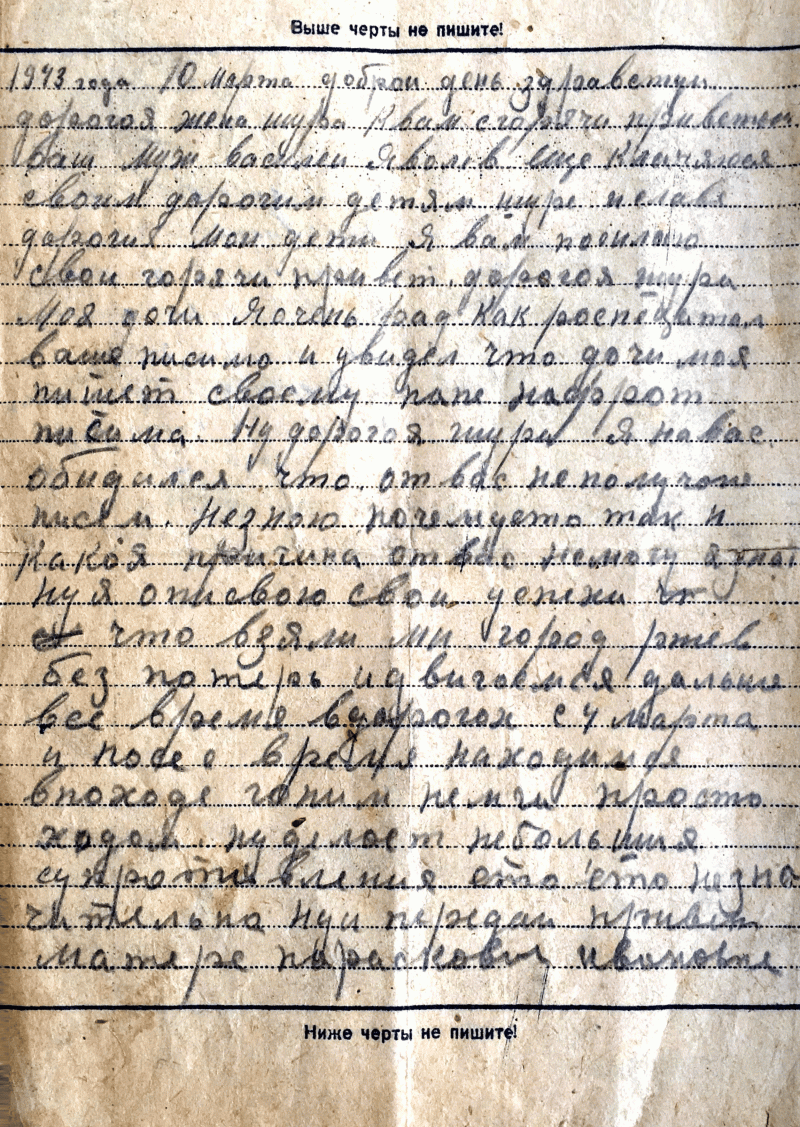 Выше черты не пишите!
1943 года 10 марта доброй день здравствуй
дорогоя жена шура к вам с горячи приветом
ваш муж василей Яволев еще кланяюся
своим дорогим детям шуре и славе
дорогие мои дети Я вам посилаю
свои горячи привет. дорогоя шура
Моя дочи Я очень рад как роспечатал
ваше писмо и увидел что дочи моя
пишет своему папе нафрот
письма. Ну дорогоя шура Я на вас
обидился что от вас не получаю
писем. Незною почемуето так и
какоя причина от вас немогу я знат
ну я описвою свои успехи
что взяли ми город ржев
без потерь идвигаемся дальше
все время вдорогох с 4 марта
и посее время находимся
впоходе гоним немци просто
ходом. ну делоет небольшия
супротивления ото ето незна
чительно нуи передай привет
матере парасковии ивановне
Ниже черты не пишите!